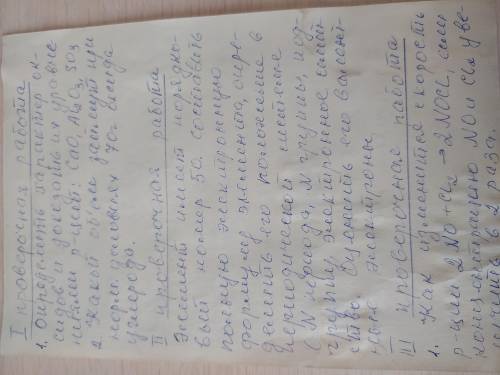 I проверочная работа
1. Определить характер ок-
сидов и доказать их уравне
ниями р-ций: CaO, Al2O3, SO3
2. Какой объем занимает при
норм. условиях 70г оксида
углерода.
II проверочная работа
Элемент имеет порядко-
вый номер 50. Составить
полную электронную
формулу элемента, опре-
делить его положение в
периодической системе
(N периода, N группы, под-
группу, электронное семей-
ство. Выделить его валент-
ные электроны.
III проверочная работа
1. Как изменится скорость
р-ции 2NO + Cl2 → 2NOCl, если
концентрацию NO и Cl2 уве-
личить в 2 раза